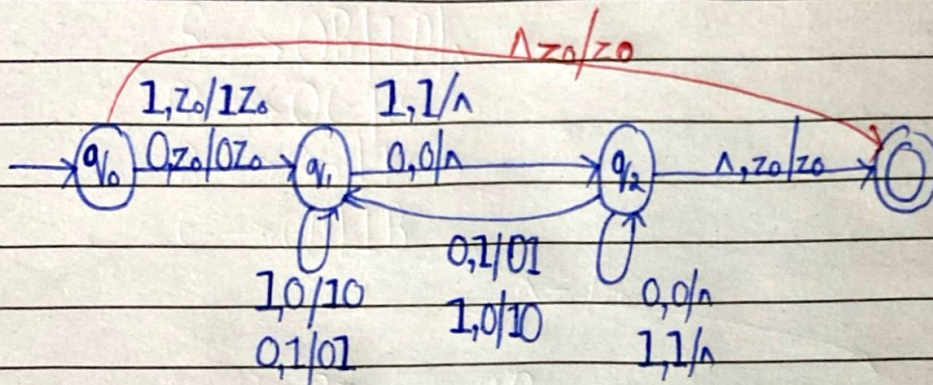 Λ z0/z0
1,z₀/1z₀ 1,1/Λ
q₀ 0,z₀/0z₀ q₁ 0,0/Λ q₂ Λ,z0/z0
0,1/01
1,0/10 0,0/Λ
1,0/10
0,1/01 1,1/Λ